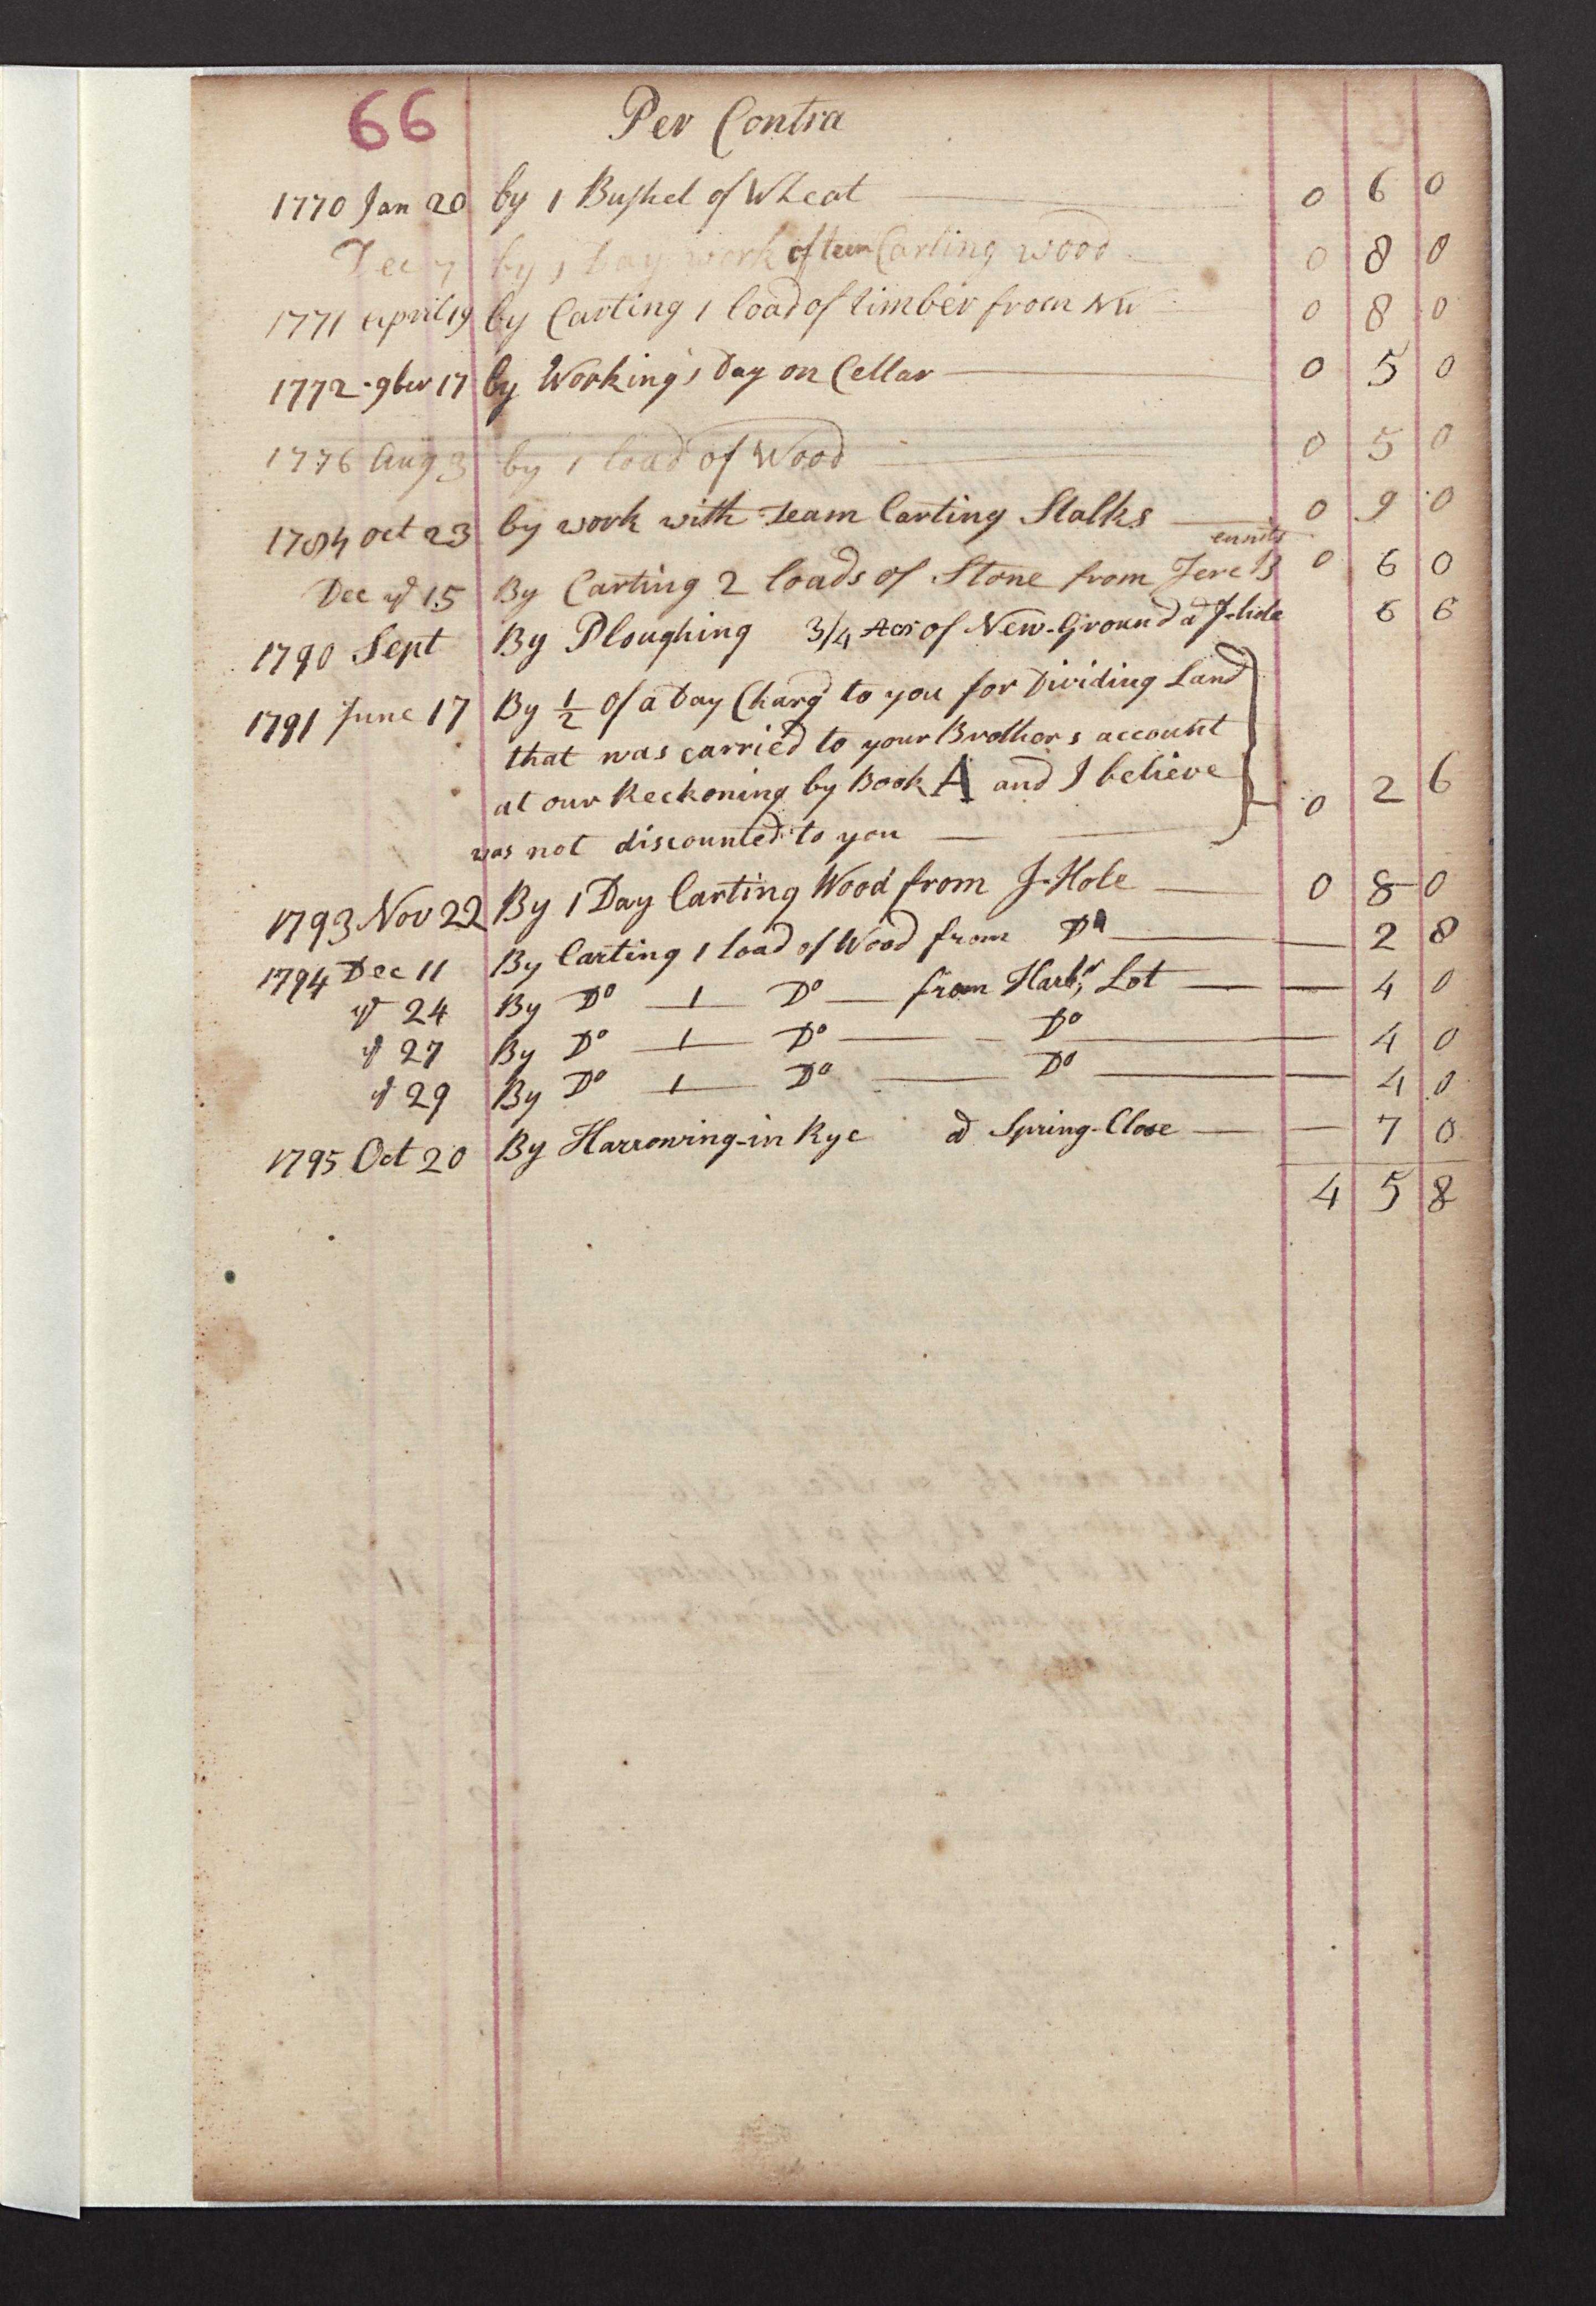 66 Per Contra
1770 Jan 20 by 1 Bushel of Wheat 0 6 0
Dec 7 by 1 Day work of team Carting wood 0 8 0
1771 april 19 by Carting 1 load of timber from NW 0 8 0
1772 - 9ber 17 by Working 1 Day on Cellar 0 5 0
1776 Aug 3 by 1 load of Wood 0 5 0
1784 oct 23 by work with Team Carting Stalks 0 9 0
Dec ye 15 By Carting 2 loads of Stone from Jere B ennits 0 6 0
1790 Sept By Ploughing 3/4 Acr of New-Ground at 6 6
1791 June 17 By 1/2 of a Day Charg'd to you for Dividing Land
that was carried to your Brothers account
at our Reckoning by Book A and I believe 0 2 6
was not discounted to you
1793 Nov 22 By 1 Day Carting Wood from J-Hole 0 8 0
1794 Dec 11 By Carting 1 load of Wood from Do 2 8
ye 24 By Do 1 Do from Harbr Lot 4 0
ye 27 By Do 1 Do Do 4 0
ye 29 By Do 1 Do Do 4 0
1795 Oct 20 By Harrowing-in Rye at Spring-Close 7 0
4 5 8